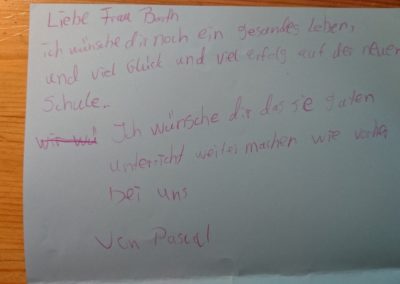 Liebe Frau Barth
ich wünsche dir noch ein gesundes Leben,
und viel Glück und viel erfolg auf der neuen
Schule..
Ich würsche dir das sie guten
unterricht weiter machen wie vorher
bei uns
Von Pascal